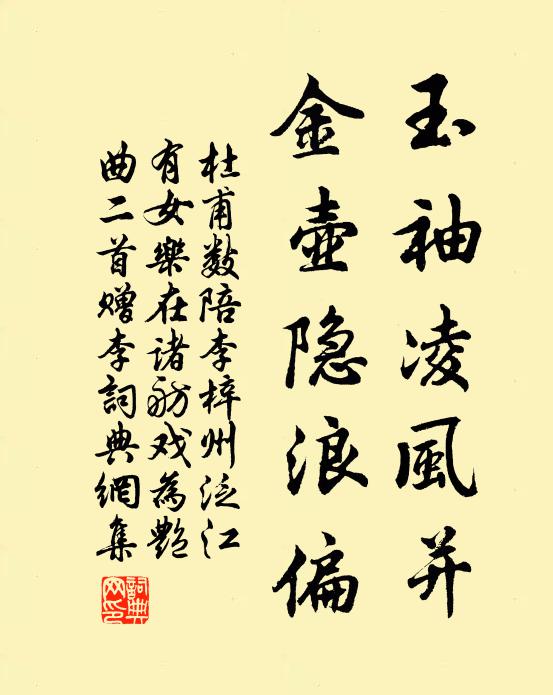 玉袖凌風并
金壺隐浪偏
杜甫數陪李梓州泛江
有女樂在诸舫戏為艶
曲二首赠李詞典網集
詞典網印